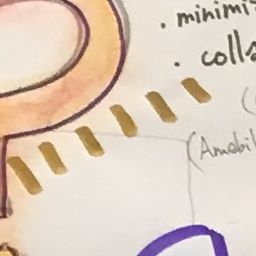 · minimi
· colla
(Amebil